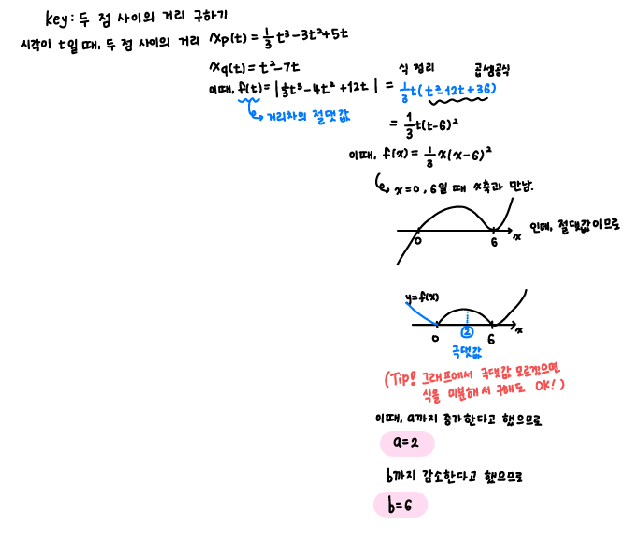 key: 두 점 사이의 거리 구하기
시각이 t일 때, 두 점 사이의 거리 xp(t) = 1/3 t³-3t²+5t
xq(t) = t²-7t
식 정리 곱셈공식
이때, f(t) = | 1/3 t³-4t²+12t | = 1/3 t(t²-12t+36)
거리차의 절댓값
= 1/3 t(t-6)²
이때, f(x) = 1/3 x(x-6)²
x=0, 6일 때 x축과 만남.
0 6 x 인데, 절댓값이므로
y=f(x)
0 ② 6 x
극댓값
(Tip! 그래프에서 극댓값 모르겠으면
식을 미분해서 구해도 OK!)
이때, a까지 증가한다고 했으므로
a=2
b까지 감소한다고 했으므로
b=6